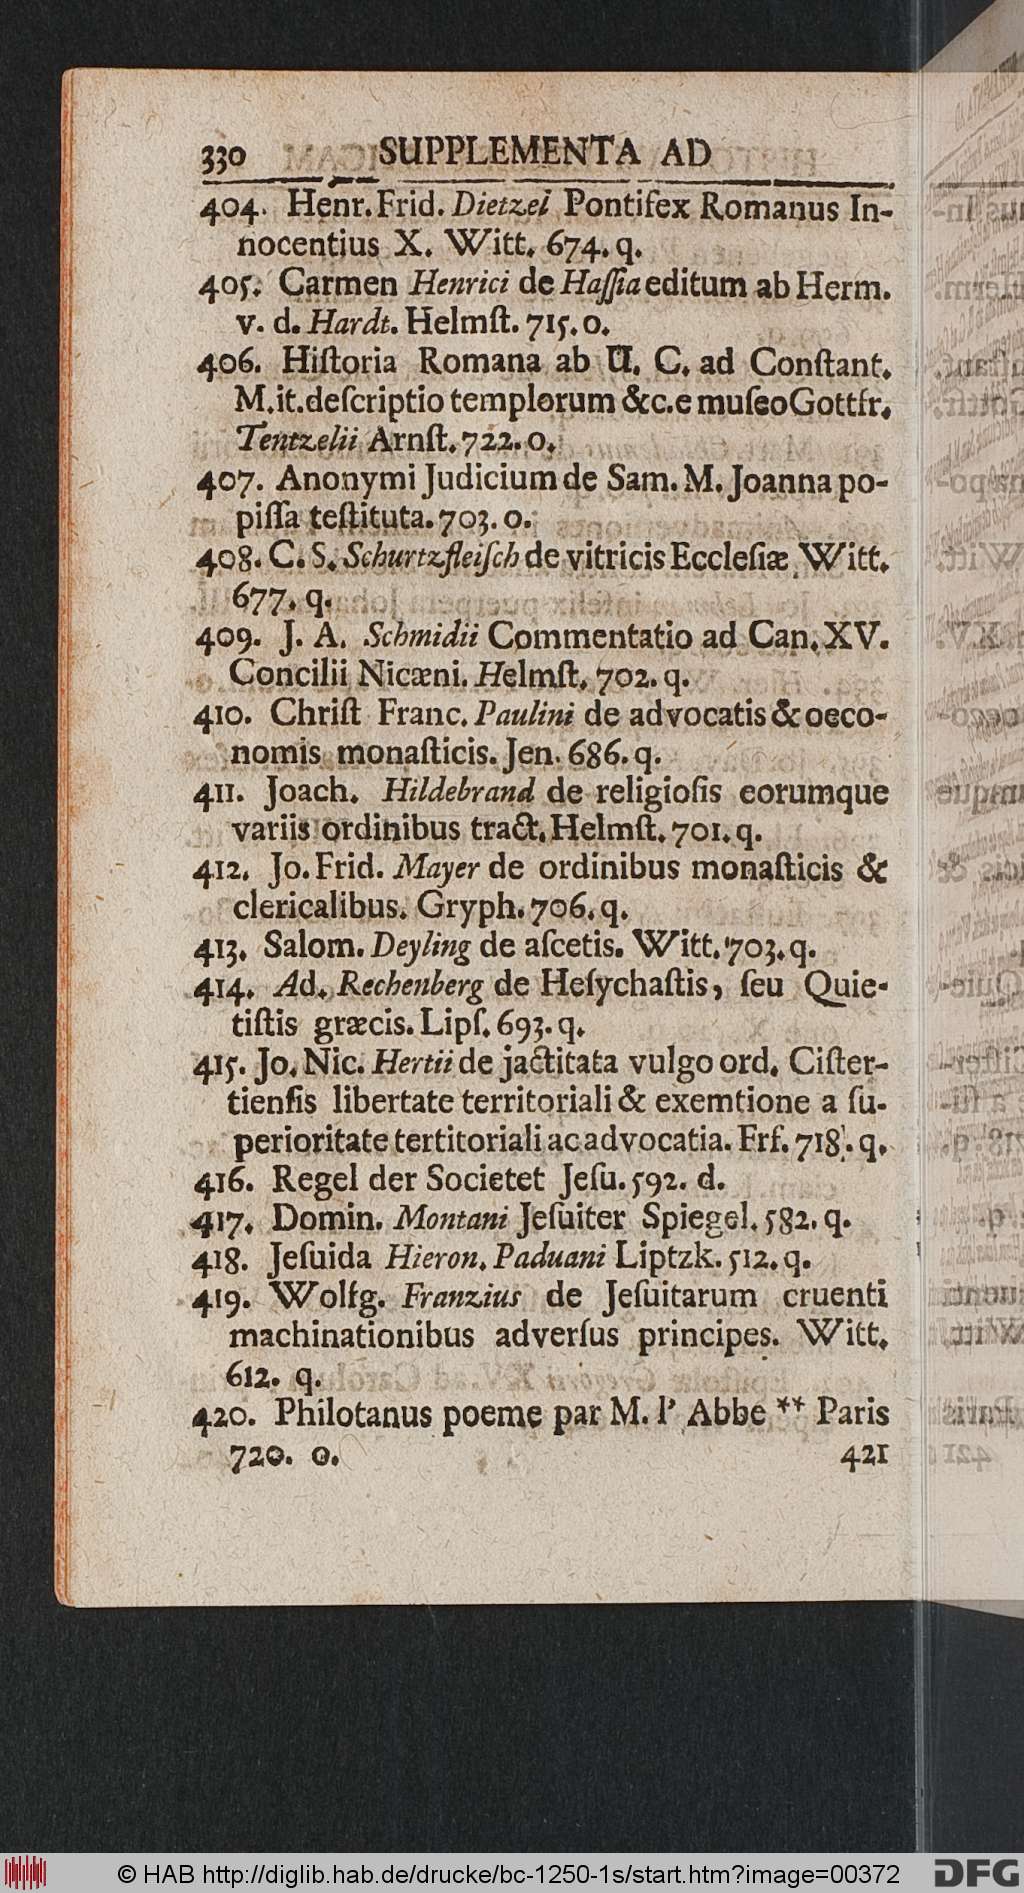 330 SUPPLEMENTA AD
404. Henr. Frid. Dietzel Pontifex Romanus In-
nocentius X. Witt. 674. q.
405. Carmen Henrici de Haſſia editum ab Herm.
v. d. Hardt. Helmſt. 715. o.
406. Hiſtoria Romana ab U. C. ad Conſtant.
M. it. deſcriptio templorum &c. e muſeo Gottfr.
Tentzelii Arnſt. 722. o.
407. Anonymi Judicium de Sam. M. Joanna po-
piſſa teſtituta. 703. o.
408. C. S. Schurtzfleiſch de vitricis Eccleſiæ Witt.
677. q.
409. J. A. Schmidii Commentatio ad Can. XV.
Concilii Nicæni. Helmſt. 702. q.
410. Chriſt Franc. Paulini de advocatis & oeco-
nomis monaſticis. Jen. 686. q.
411. Joach. Hildebrand de religioſis eorumque
variis ordinibus tract. Helmſt. 701. q.
412. Jo. Frid. Mayer de ordinibus monaſticis &
clericalibus. Gryph. 706. q.
413. Salom. Deyling de aſcetis. Witt. 703. q.
414. Ad. Rechenberg de Heſychaſtis, ſeu Quie-
tiſtis græcis. Lipſ. 693. q.
415. Jo. Nic. Hertii de jactitata vulgo ord. Ciſter-
tienſis libertate territoriali & exemtione a ſu-
perioritate tertitoriali ac advocatia. Frf. 718. q.
416. Regel der Societet Jeſu. 592. d.
417. Domin. Montani Jeſuiter Spiegel. 582. q.
418. Jeſuida Hieron. Paduani Liptzk. 512. q.
419. Wolfg. Franzius de Jeſuitarum cruenti
machinationibus adverſus principes. Witt.
612. q.
420. Philotanus poeme par M. l' Abbe ** Paris
720. o. 421
© HAB http://diglib.hab.de/drucke/bc-1250-1s/start.htm?image=00372 DFG